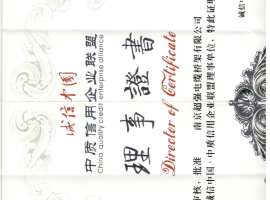 诚信中国
中质信用企业联盟
China quality credit enterprise alliance
理事證書
Director of Certificate
审核、批准 南京超强电缆桥架有限公司
诚信中国·中质信用企业联盟理事单位，特此证明
诚信